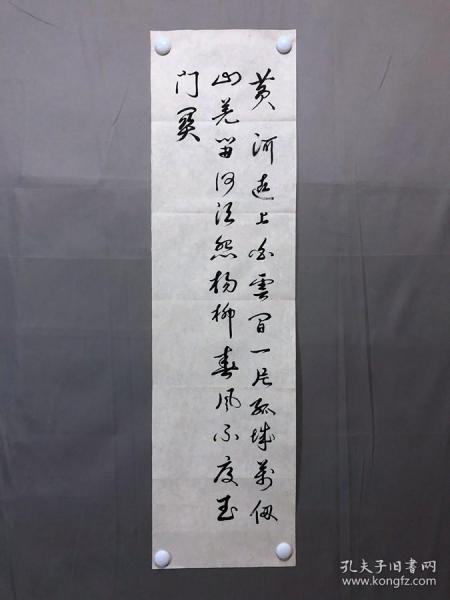 黄河远上白雲间一片孤城萬仞
山羌笛何须怨杨柳春风不度玉
门関
孔夫子旧书网
www.kongfz.com